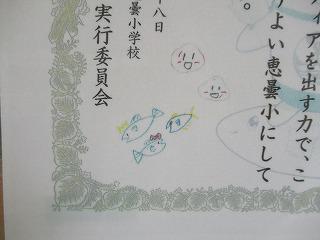 イアを出す力で、こ
りよい恵曇小にして
。
十八日
曇小学校
実行委員会